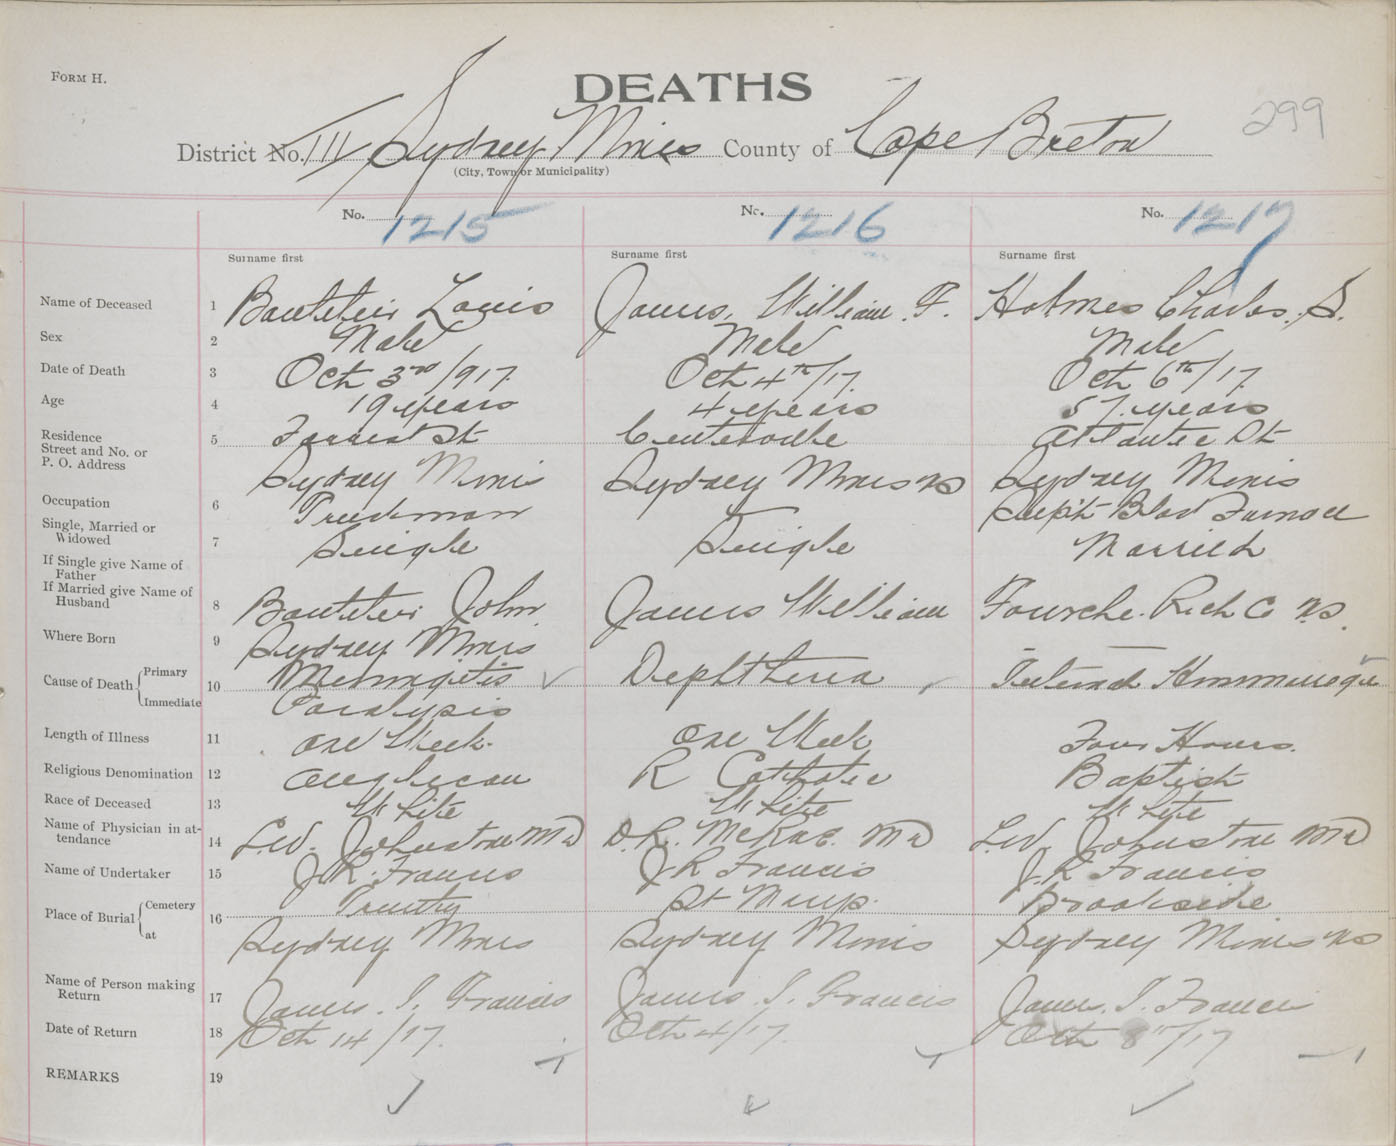 FORM H.
DEATHS
299
District No. 111 Sydney Mines County of Cape Breton
(City, Town or Municipality)
No. 1215 No. 1216 No. 1217
Surname first Surname first Surname first
Name of Deceased 1 Louis James, William F. Holmes Charles. S.
Sex 2 Male Male Male
Date of Death 3 Oct 3rd/917. Oct 4th/17. Oct 6th/17
Age 4 19 years 4 years 57. years
Residence
Street and No. or
P. O. Address
5 Forrest St Centerville Atlantic St
Sydney Mines Sydney Mines NS Sydney Mines
Occupation 6 Truckman Supt Blas Furnace
Single, Married or
Widowed
7 Single Single Married
If Single give Name of
Father
If Married give Name of
Husband
8 John James William Fourche. Rich Co N.S.
Where Born 9 Sydney Mines — —
Cause of Death Primary 10 Meningitis Diphtheria Internal
Immediate Paralysis
Length of Illness 11 One Week. One Week Four Hours.
Religious Denomination 12 Anglican R Catholic Baptist
Race of Deceased 13 White White White
Name of Physician in at-
tendance
14 L.W. Johnstone MD D.R. McRae. MD L.W. Johnstone MD
Name of Undertaker 15 J.R. Francis J.R Francis J.R Francis
Place of Burial Cemetery 16 Trinity St Marys. Brookside
at Sydney Mines Sydney Mines Sydney Mines NS
Name of Person making
Return
17 James. I. Francis James. I. Francis James. I. Francis
Date of Return 18 Oct 14/17. Oct 4/17. Oct 8th/17
REMARKS 19